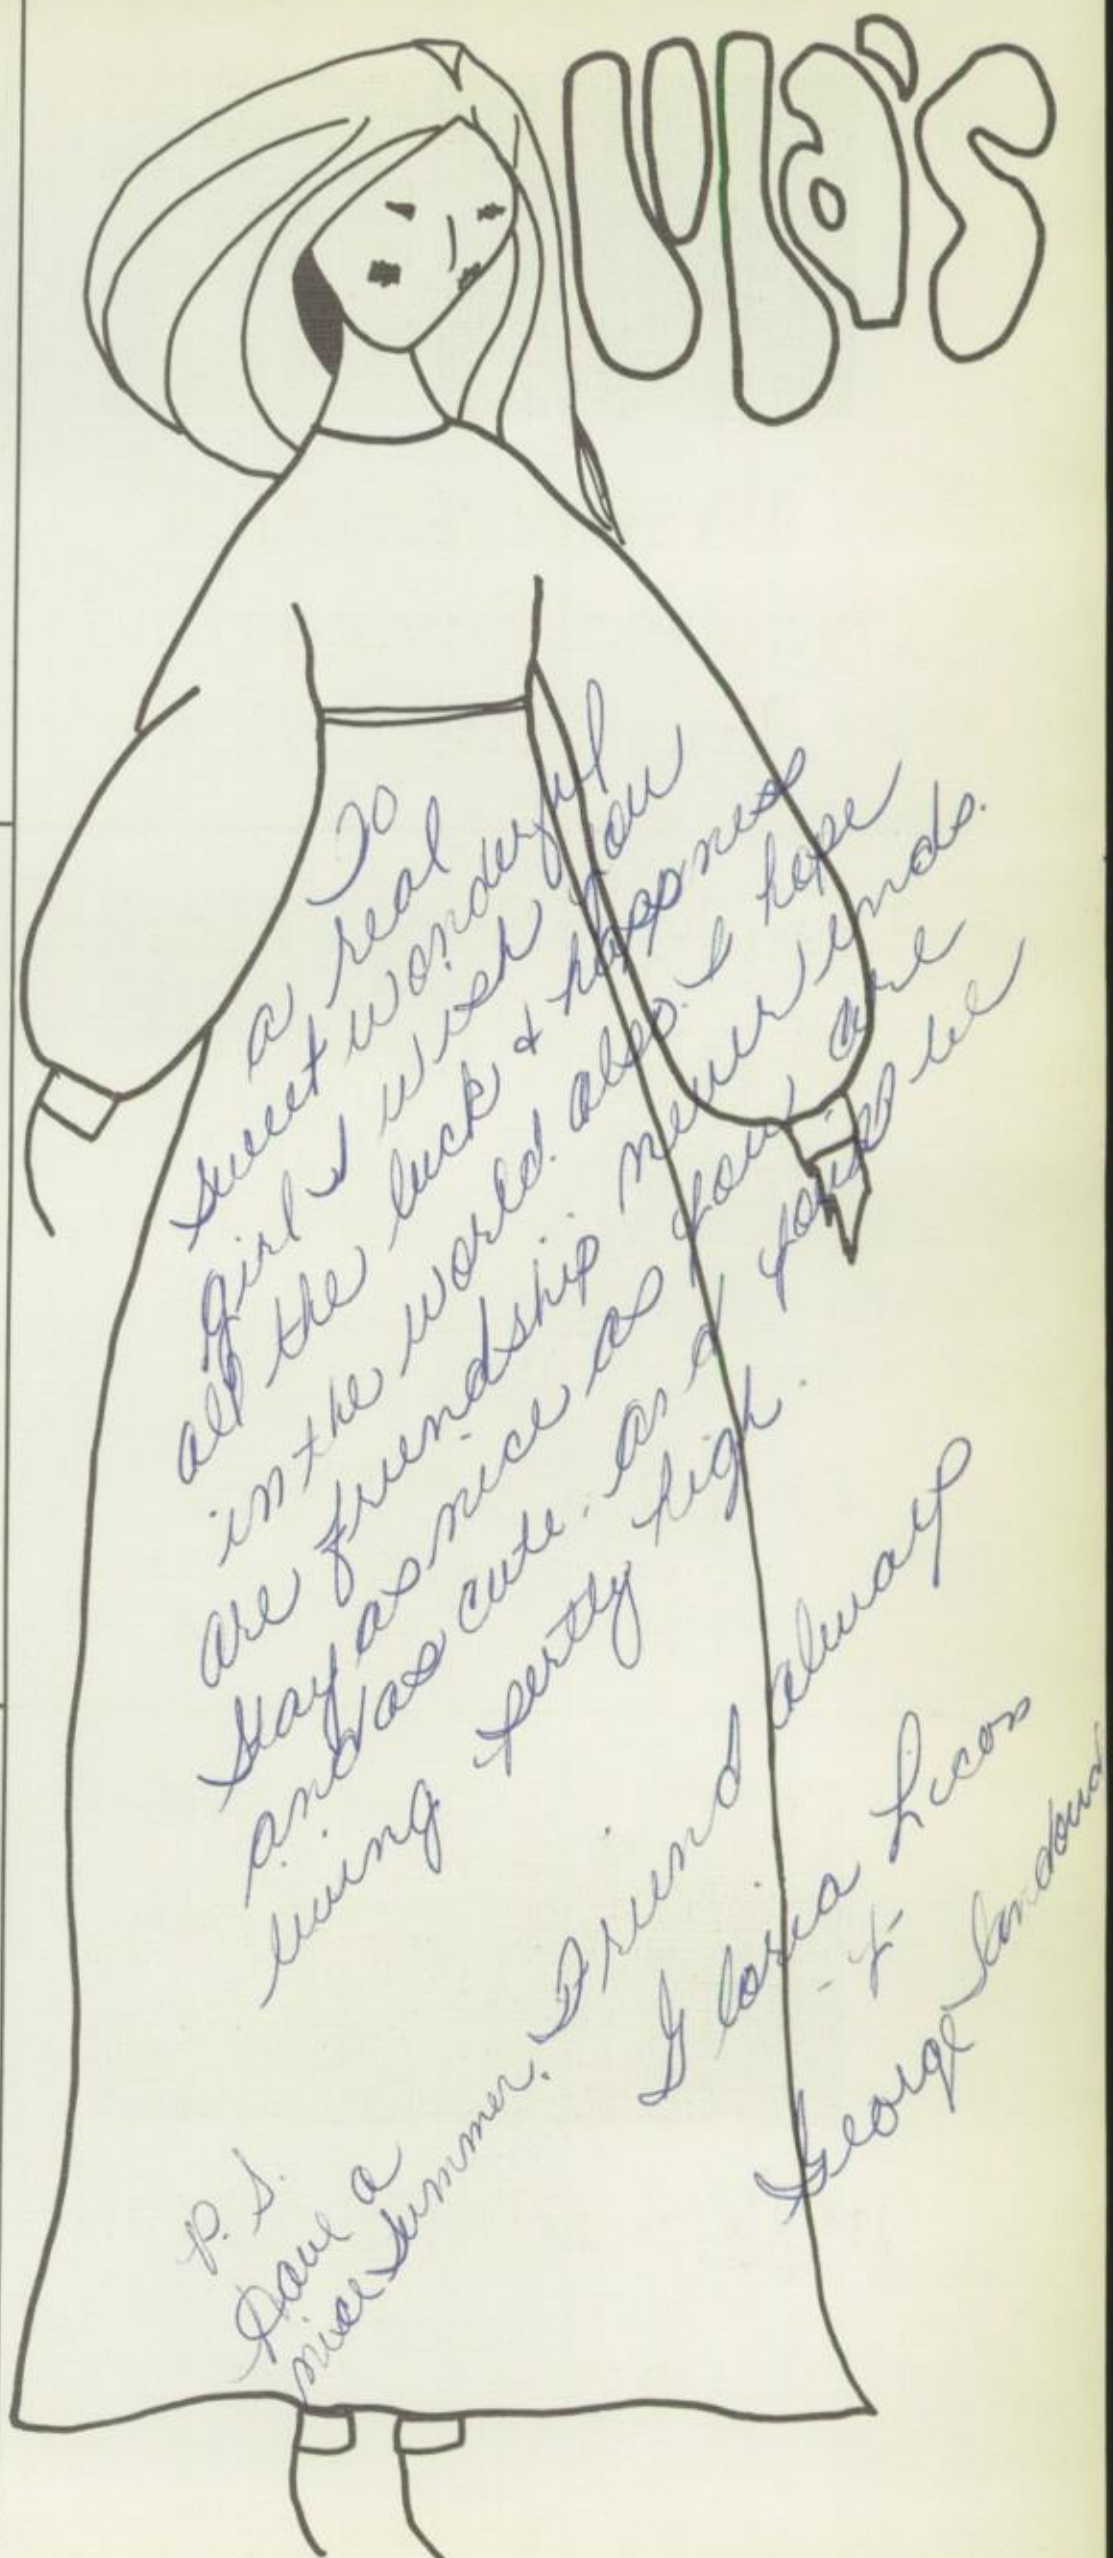 Ula's
To
a real
sweet wonderful
girl I wish you
all the luck & happness
in the world. also. I hope
are friendship never ends.
Stay as nice as you are
and as cute. as a
living pertty high.
Friend always
Gloria
&
George
P.S.
Have a
nice summer.